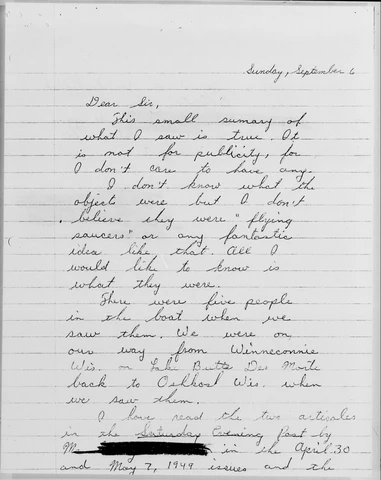 Sunday, September 6
Dear Sir,
This small sumary of
what I saw is true. It
is not for publicity, for
I don't care to have any.
I don't know what the
objects were but I don't
believe they were "flying
saucers" or any fantastic
idea like that. All I
would like to know is
what they were.
There were five people
in the boat when we
saw them. We were on
our way from Winneconnie
Wis. on Lake Butte Des Morte
back to Oshkosh Wis. when
we saw them.
I have read the two articales
in the Saturday Evening Post by
in the April 30
and May 7, 1949 issues and the